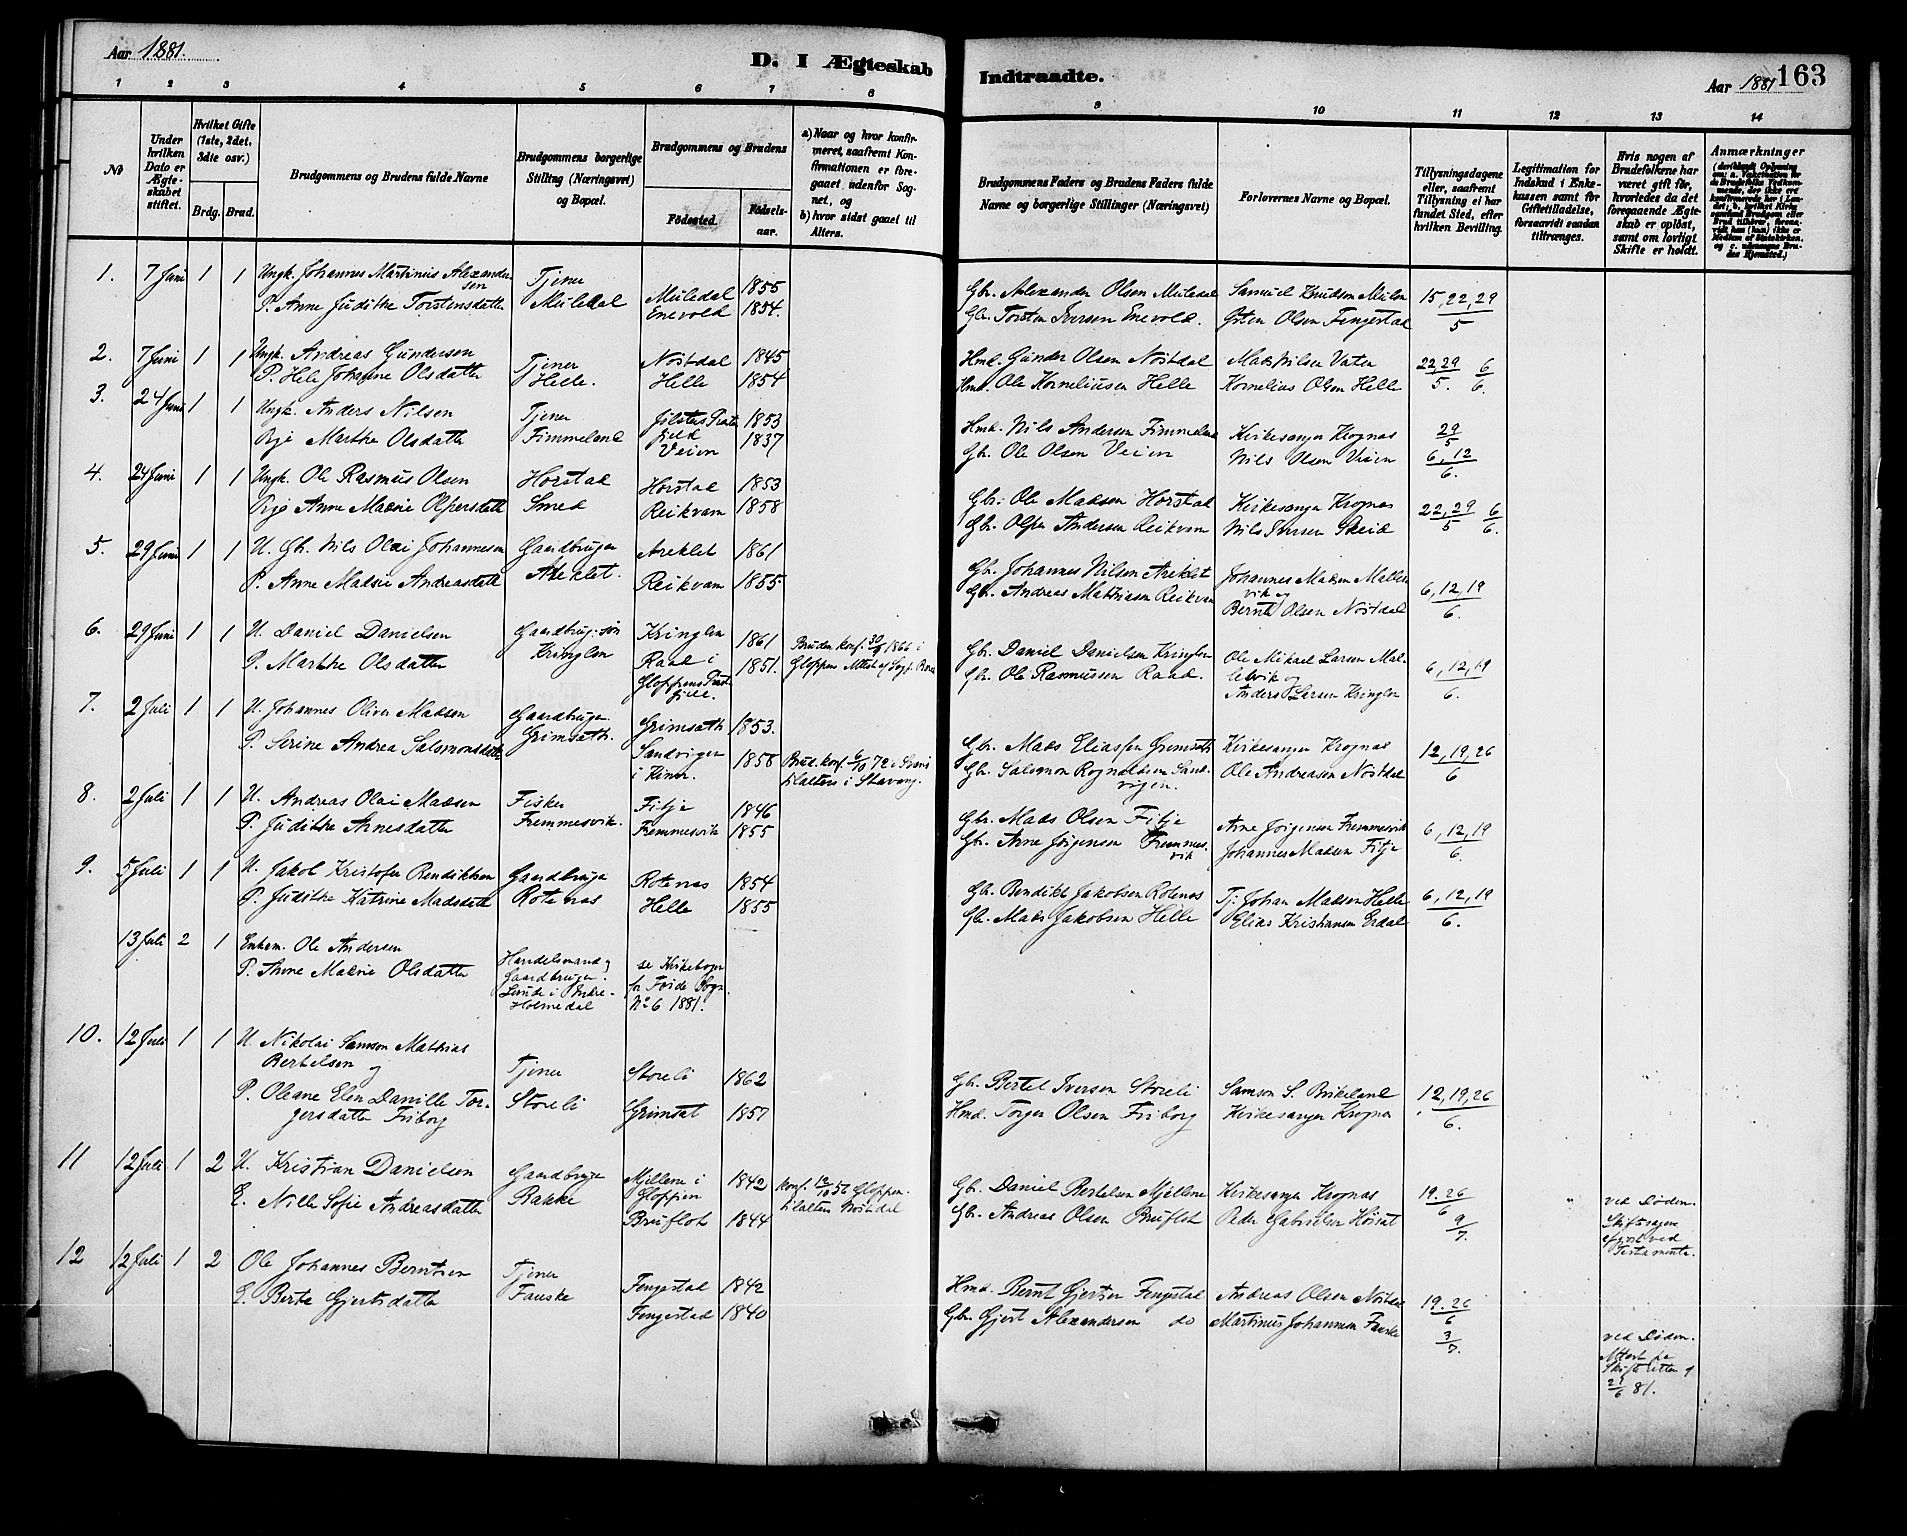 Aar 1881.
D. I Ægteskab Indtraadte.
Aar 1881 163
1 2 3 4 5 6 7 8 9 10 11 12 13 14
No
Under hvilken Dato er Ægteskabet stiftet.
Hvilket Gifte (1ste, 2det, 3die osv.)
Brdg. Brud.
Brudgommens og Brudens fulde Navne
Brudgommens borgerlige Stilling (Næringsvei) og Bopæl.
Brudgommens og Brudens
Fødested. Fødselsaar.
a) Naar og hvor konfirmeret, saafremt Konfirmationen er foregaaet udenfor Sognet, og
b) hvor sidst gaaet til Alters.
Brudgommens Faders og Brudens Faders fulde Navne og borgerlige Stillinger (Næringsvei)
Forlovernes Navne og Bopæl.
Tillysningsdagene eller, saafremt Tillysning ei har fundet Sted, efter hvilken Bevilling.
Legitimation for Indskud i Enkekassen samt for Giftetilladelse, forsaavidt saadan tiltrænges.
Hvis nogen af Brudefolkene har været gift før, hvorledes da det foregaaende Ægteskab er opløst, samt om lovligt Skifte er holdt.
Anmærkninger
1. 7 Juni 1 1 Ungk. Johannes Martinus Alexandersen Tjener Muledal 1855 Gbr. Alexander Olsen Muledal Samuel Knudsen Mulen 15, 22, 29
P. Anne Judithe Torstensdatter Muledal Enevold 1854. Gbr. Torsten Iversen Enevold. Østen Olsen Fengestad 5
2. 7 Juni 1 1 Ungk. Andreas Gundersen Tjener Nøstdal 1845 Hmd. Gunder Olsen Nøstdal Mads Nilsen Vaten 22, 29 6
P. Hele Johanne Olsdatter Helle. Helle 1854 Hmd. Ole Korneliusen Helle Kornelius Olsen Helle 5. 6.
3. 24 Juni 1 1 Ungk. Anders Nilsen Tjener Jølsters Præstegjeld 1853 Hmd. Nils Andersen Fimmeland Kirkesanger Krognæs 29 5
Pige Marthe Olsdatter Fimmeland Veien 1837 Gbr. Ole Olsen Veien Nils Olsen Veien 6, 12 6.
4. 24 Juni 1 1 Ungk. Ole Rasmus Olsen Horstad Horstad 1853 Gbr. Ole Madsen Horstad Kirkesanger Krognæs 22, 29 6
Pige Anne Madsie Olpersdatt Smed Reikvam 1858 Gbr. Olper Andersen Reikvam Nils Iversen Skeid 5 6.
5. 29 Juni 1 1 U. Gbr. Nils Olai Johannesen Gaardbruger Areklet 1861 Gbr. Johannes Nilsen Areklet Johannes Madsen Mallesvik og 6, 12, 19
P. Anne Madsie Andreasdatt Areklet. Reikvam 1855 Gbr. Andreas Mathiasen Reikvam Bernt Olsen Nøstdal 6.
6. 29 Juni 1 1 U. Daniel Danielsen Gaardbrug. søn Kringlen 1861 Bruden konf. 30/9 1866 i Gbr. Daniel Danielsen Kringlen Ole Mikael Larsen Mallesvik og 6, 12, 19
P. Marthe Olsdatter Kringlen Raad i Gloppens Præstgjeld. 1851. Gloppen Gbr. Ole Rasmussen Raad. Anders Larsen Kringlen 6.
7. 2 Juli 1 1 U. Johannes Oliver Madsen Gaardbruger Grimsæth 1853. Gbr. Mads Eliassen Grimsæth Kirkesanger Krognæs 12, 19, 26
P. Serine Andrea Salomonsdatter Grimsæth. Sandvigen i Kinn. 1856 Brud. konf. 6/10 72 i tilalters i Stavang. Gbr. Salomon Rognaldsen Sandvigen. Ole Andreasen Nøstdal 6
8. 2 Juli 1 1 U. Andreas Olai Madsen Fisker Fitje 1846 Gbr. Mads Olsen Fitje Arne Jørgensen Fremmesvik 6, 12, 19
P. Judithe Arnesdatter Fremmesvik. Fremmesvik 1855 Gbr. Arne Jørgensen Fremmesvik Johannes Madsen Fitje 6.
9. 5 Juli 1 1 U. Jakob Kristofer Bendiktsen Gaardbruger Rotenæs 1854 Gbr. Bendikt Jakobsen Rotenæs Tj. Johan Madsen Helle 6, 12, 19
P. Judithe Katrine Madsdatt Rotenæs Helle 1855 Gbr. Mads Jakobsen Helle Elias Kristiansen Erdal 6.
13 Juli 2 1 Enkem. Ole Andersen Handelsmand og Gaardbruger. se Kirkebogen
P. Anne Madsie Olsdatter Lunde i Indre-Holmedal for Førde Sogn No 6 1881.
10. 12 Juli 1 1 U. Nikolai Samson Mathias Bertelsen og Tjener Storeli 1862 Gbr. Bertel Iversen Storeli Samson S. Birkeland 12, 19, 26
P. Oleane Elen Danille Torgersdatter Friborg Storeli Grimsæt 1857 Hmd. Torger Olsen Friborg Kirkesanger Krognæs 6.
11 12 Juli 1 2 U. Kristian Danielsen Gaardbruger Mjellem i Gloppen 1842 konf. 12/10 56 Gloppen. Gbr. Daniel Bertelsen Mjellem Kirkesanger Krognæs 19. 26 6 " ved Døden.
E. Nille Sofie Andreasdatter Bakke Bruflot 1844 tilalters Nøstdal Gbr. Andreas Olsen Bruflot Peder Gabrielsen Høisæt 9 7. Skiftesagen afgjort ved Testamente.
12 12 Juli 1 2 Ole Johannes Berntsen Tjener Fengestad 1842 Hmd. Bernt Gjertsen Fengestad Andreas Olsen Nøstdal 19. 26 6
E. Berte Gjertsdatter Fauske Fengestad 1840 Gbr. Gjert Alexandersen do Martinus Johannsen Fauske 3 7. ved Døden. Attest fra Skifteretten af 21/6 81.